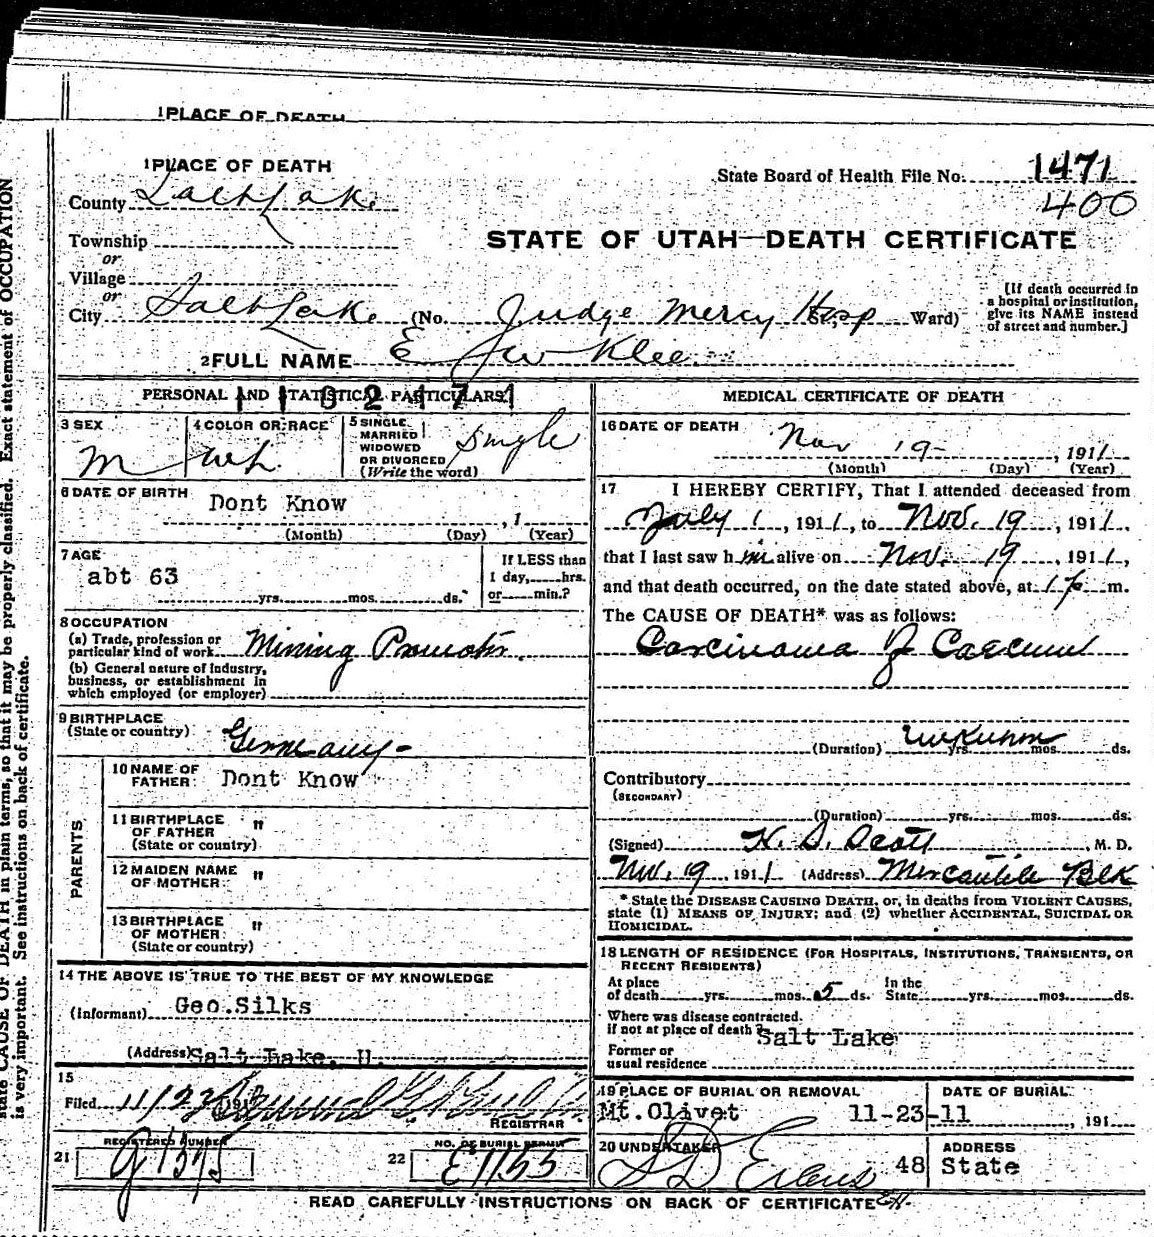 1 PLACE OF DEATH
1 PLACE OF DEATH
State Board of Health File No. 1471
400
County Salt Lake
STATE OF UTAH—DEATH CERTIFICATE
Township
or
Village
or
City Salt Lake (No. Judge Mercy Hosp Ward)
(If death occurred in
a hospital or institution,
give its NAME instead
of street and number.]
2 FULL NAME E Klee
PERSONAL AND STATISTICAL PARTICULARS
1102171
3 SEX
M
4 COLOR OR RACE
wh.
5 SINGLE
MARRIED
WIDOWED
OR DIVORCED
(Write the word)
Single
6 DATE OF BIRTH Dont Know
, 1
(Month) (Day) (Year)
7 AGE
abt 63
yrs. mos. ds.
If LESS than
1 day, hrs.
or min.?
8 OCCUPATION
(a) Trade, profession or
particular kind of work Mining Promoter
(b) General nature of industry,
business, or establishment in
which employed (or employer)
9 BIRTHPLACE
(State or country) Germany-
PARENTS
10 NAME OF
FATHER Dont Know
11 BIRTHPLACE "
OF FATHER
(State or country)
12 MAIDEN NAME "
OF MOTHER
13 BIRTHPLACE "
OF MOTHER
(State or country)
14 THE ABOVE IS TRUE TO THE BEST OF MY KNOWLEDGE
(Informant) Geo.Silks
(Address) Salt Lake, U.
15
Filed 11/22 191
REGISTRAR
REGISTERED NUMBER
21 G1575
NO. OF BURIAL PERMIT
22 E1155
MEDICAL CERTIFICATE OF DEATH
16 DATE OF DEATH Nov 19- , 1911
(Month) (Day) (Year)
17 I HEREBY CERTIFY, That I attended deceased from
July 1, 1911, to Nov. 19, 1911,
that I last saw him alive on Nov. 19, 1911,
and that death occurred, on the date stated above, at 1 P m.
The CAUSE OF DEATH* was as follows:
Carcinoma of Caecum
(Duration) unknown yrs. mos. ds.
Contributory
(SECONDARY)
(Duration) yrs. mos. ds.
(Signed) H. D. Scott , M. D.
Nov. 19, 1911 (Address) Mercantile Blk
* State the DISEASE CAUSING DEATH, or, in deaths from VIOLENT CAUSES,
state (1) MEANS OF INJURY; and (2) whether ACCIDENTAL, SUICIDAL OR
HOMICIDAL.
18 LENGTH OF RESIDENCE (FOR HOSPITALS, INSTITUTIONS, TRANSIENTS, OR
RECENT RESIDENTS)
At place
of death yrs. mos. 5 ds.
In the
State yrs. mos. ds.
Where was disease contracted.
if not at place of death? Salt Lake
Former or
usual residence
19 PLACE OF BURIAL OR REMOVAL
Mt.Olivet
DATE OF BURIAL
11-23-11 , 191
20 UNDERTAKER
S D Evans
ADDRESS
48 State
READ CAREFULLY INSTRUCTIONS ON BACK OF CERTIFICATE
state CAUSE OF DEATH in plain terms, so that it may be properly classified. Exact statement of OCCUPATION
is very important. See instructions on back of certificate.